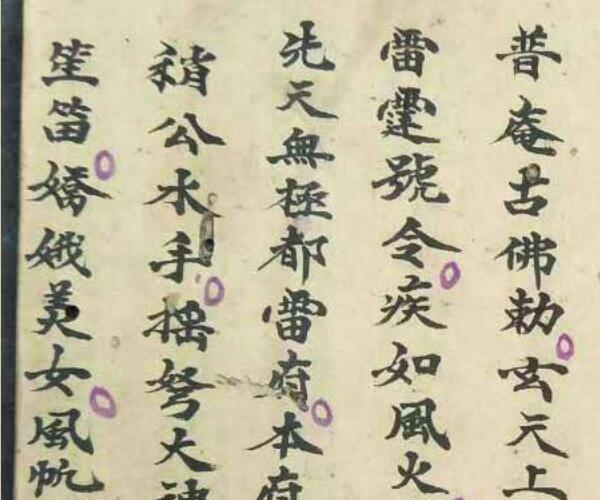 普庵古佛勅玄天上
雷霆號令疾如風火
先天無極都雷府本府
稍公水手搖拏大神
笙笛嬌娥美女風帆